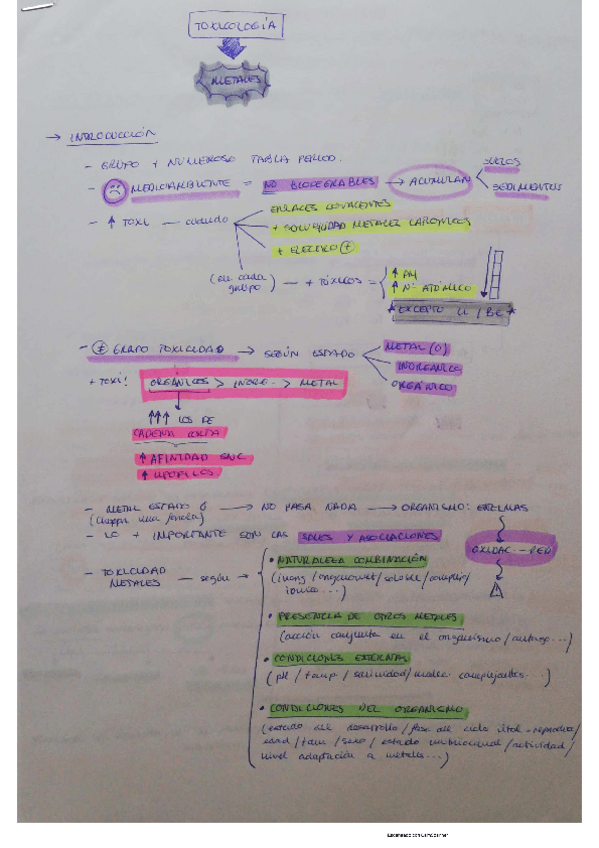 TOXICOLOGÍA
METALES
→ INTRODUCCIÓN
- GRUPO + NUMEROSO TABLA PERIOD.
- MEDIOAMBIENTE = NO BIODEGRABLES → ACUMULAN
SUELOS
SEDIMENTOS
- ↑ TOXI — cuando
ENLACES COVALENTES
+ SOLUBILIDAD METALES CATIONICOS
+ ELECTRO +
(en cada grupo) — + TÓXICOS =
↑ PM
↑ Nº ATÓMICO
* EXCEPTO LI / BE *
- ≠ GRADO TOXICIDAD → SEGÚN ESTADO
METAL (0)
INORGÁNICO
ORGÁNICO
+ TOXI: ORGÁNICOS > INORG. > METAL
↑↑↑ LOS DE
CADENA CORTA
↑ AFINIDAD SNC
↑ LIPOFILOS
- METAL ESTADO 0 → NO PASA NADA → ORGANISMO: ENZIMAS
- LO + IMPORTANTE SON LAS SALES Y ASOCIACIONES
OXIDAC. - RED
- TOXICIDAD METALES — según →
• NATURALEZA COMBINACIÓN
• PRESENCIA DE OTROS METALES
(acción conjunta en el organismo/
• CONDICIONES EXTERNAS
(pH / temp / salinidad/
• CONDICIONES DEL ORGANISMO
(estado del desarrollo / fase del ciclo vital - reproduc/
edad / tam / sexo / estado nutricional / actividad/
nivel adaptación a metales...)
Escaneado con CamScanner